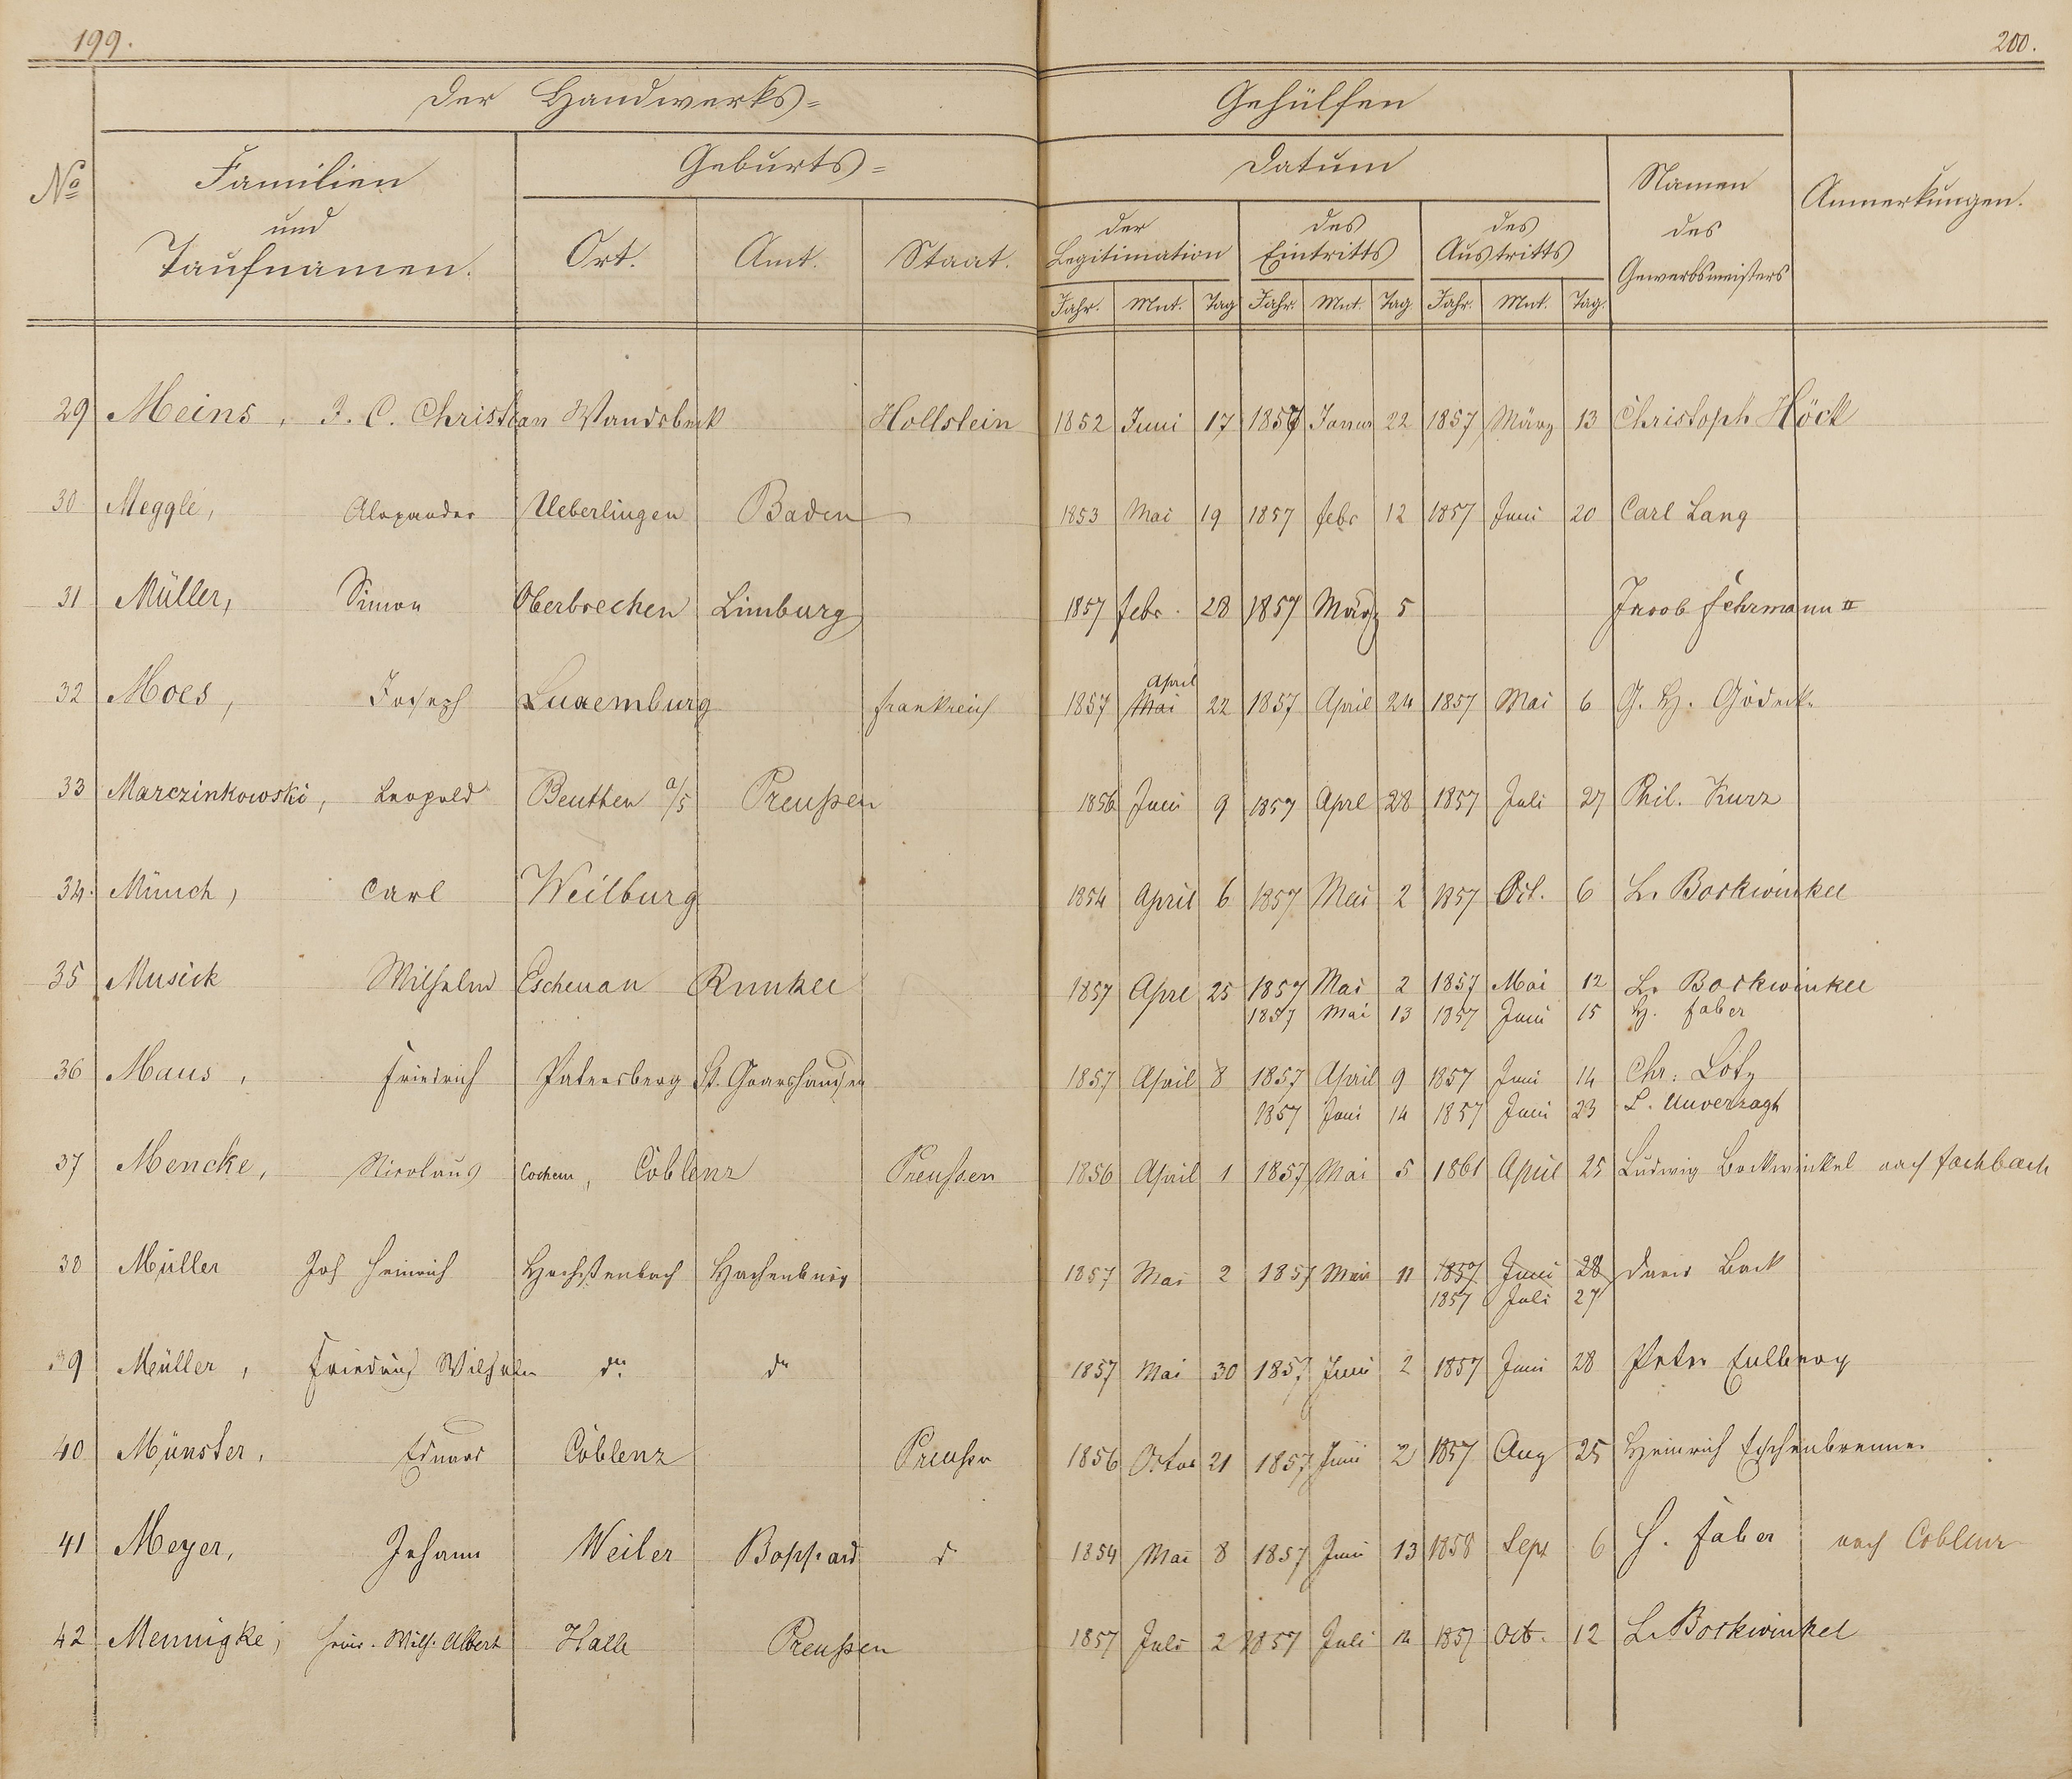 199.
200.
Der Handwerks=
Gehülfen
No
Familien
und
Taufnamen.
Geburts=
Ort.
Amt.
Staat.
Datum
der
Legitimation
des
Eintritts
des
Austritts
Jahr. Mnt. Tag Jahr. Mnt. Tag. Jahr. Mnt. Tag.
Namen
des
Gewerbsmeisters
Anmerkungen.
29 Meins, J. C. Christian Wandsbeck Hollstein 1852 Juni 17 1857 Januar 22 1857 März 13 Christoph Höck
30 Meggle, Alexander Ueberlingen Baden 1853 Mai 19 1857 febr 12 1857 Juni 20 Carl Lang
31 Müller, Simon Oberbrechen Limburg 1857 febr. 28 1857 März 5 Jacob Fehrmann II
32 Moes, Joseph Luxemburg Frankreich 1857 Mai April 22 1857 April 24 1857 Mai 6 G. H. Gödecke
33 Marczinkowski, Leopold Beuthen a/S Preußen 1856 Juni 9 1857 Aprl 28 1857 Juli 27 Phil. Kurz
34. Münch, Carl Weilburg 1854 April 6 1857 Mai 2 1857 Oct. 6 L. Bockwinkel
35 Musick Wilhelm Eschenau Runkel 1857 Aprl 25 1857 Mai 2 1857 Mai 12 L. Bockwinkel
1857 Mai 13 1857 Juni 15 H. Faber
36 Maus, Friedrich Patersberg St. Goarshausen 1857 April 8 1857 April 9 1857 Juni 14 Chr: Lotz
1857 Juni 14 1857 Juni 23 L. Unverzagt
37 Mencke, Nicolaus Cochem, Coblenz Preußen 1856 April 1 1857 Mai 5 1861 April 25 Ludwig Bockwinkel nach Fachbach
38 Müller Joh Heinrich Hachenburg 1857 Mai 2 1857 Mai 11 1857 Juni 28 David Bock
1857 Juli 27
39 Müller, Friedrich Wilhelm do. do 1857 Mai 30 1857 Juni 2 1857 Juni 28 Peter Eulberg
40 Münster, Eduard Coblenz Preußen 1856 Octor 21 1857 Juni 2 1857 Aug 25 Heinrich Eschenbrenner
41 Meyer, Johann Weiler Boppard d 1854 Mai 8 1857 Juni 13 1858 Sept 6 H. Faber nach Coblenz
42 Mennigke, Heinr. Wilh. Albert Halle Preußen 1857 Juli 2 1857 Juli 14 1857 Oct. 12 L. Bockwinkel